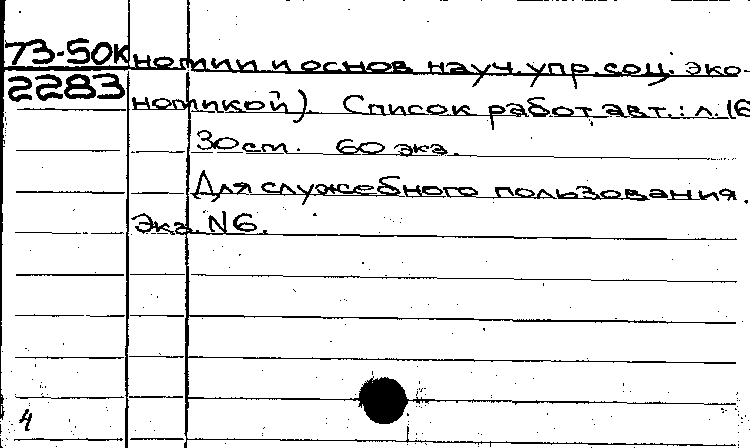 73-50к
2283
номии и основ науч. упр. соц. эко-
номикой). Список работ авт.: л. 16
30 см. 60 экз.
Для служебного пользования.
Экз. N6.
4